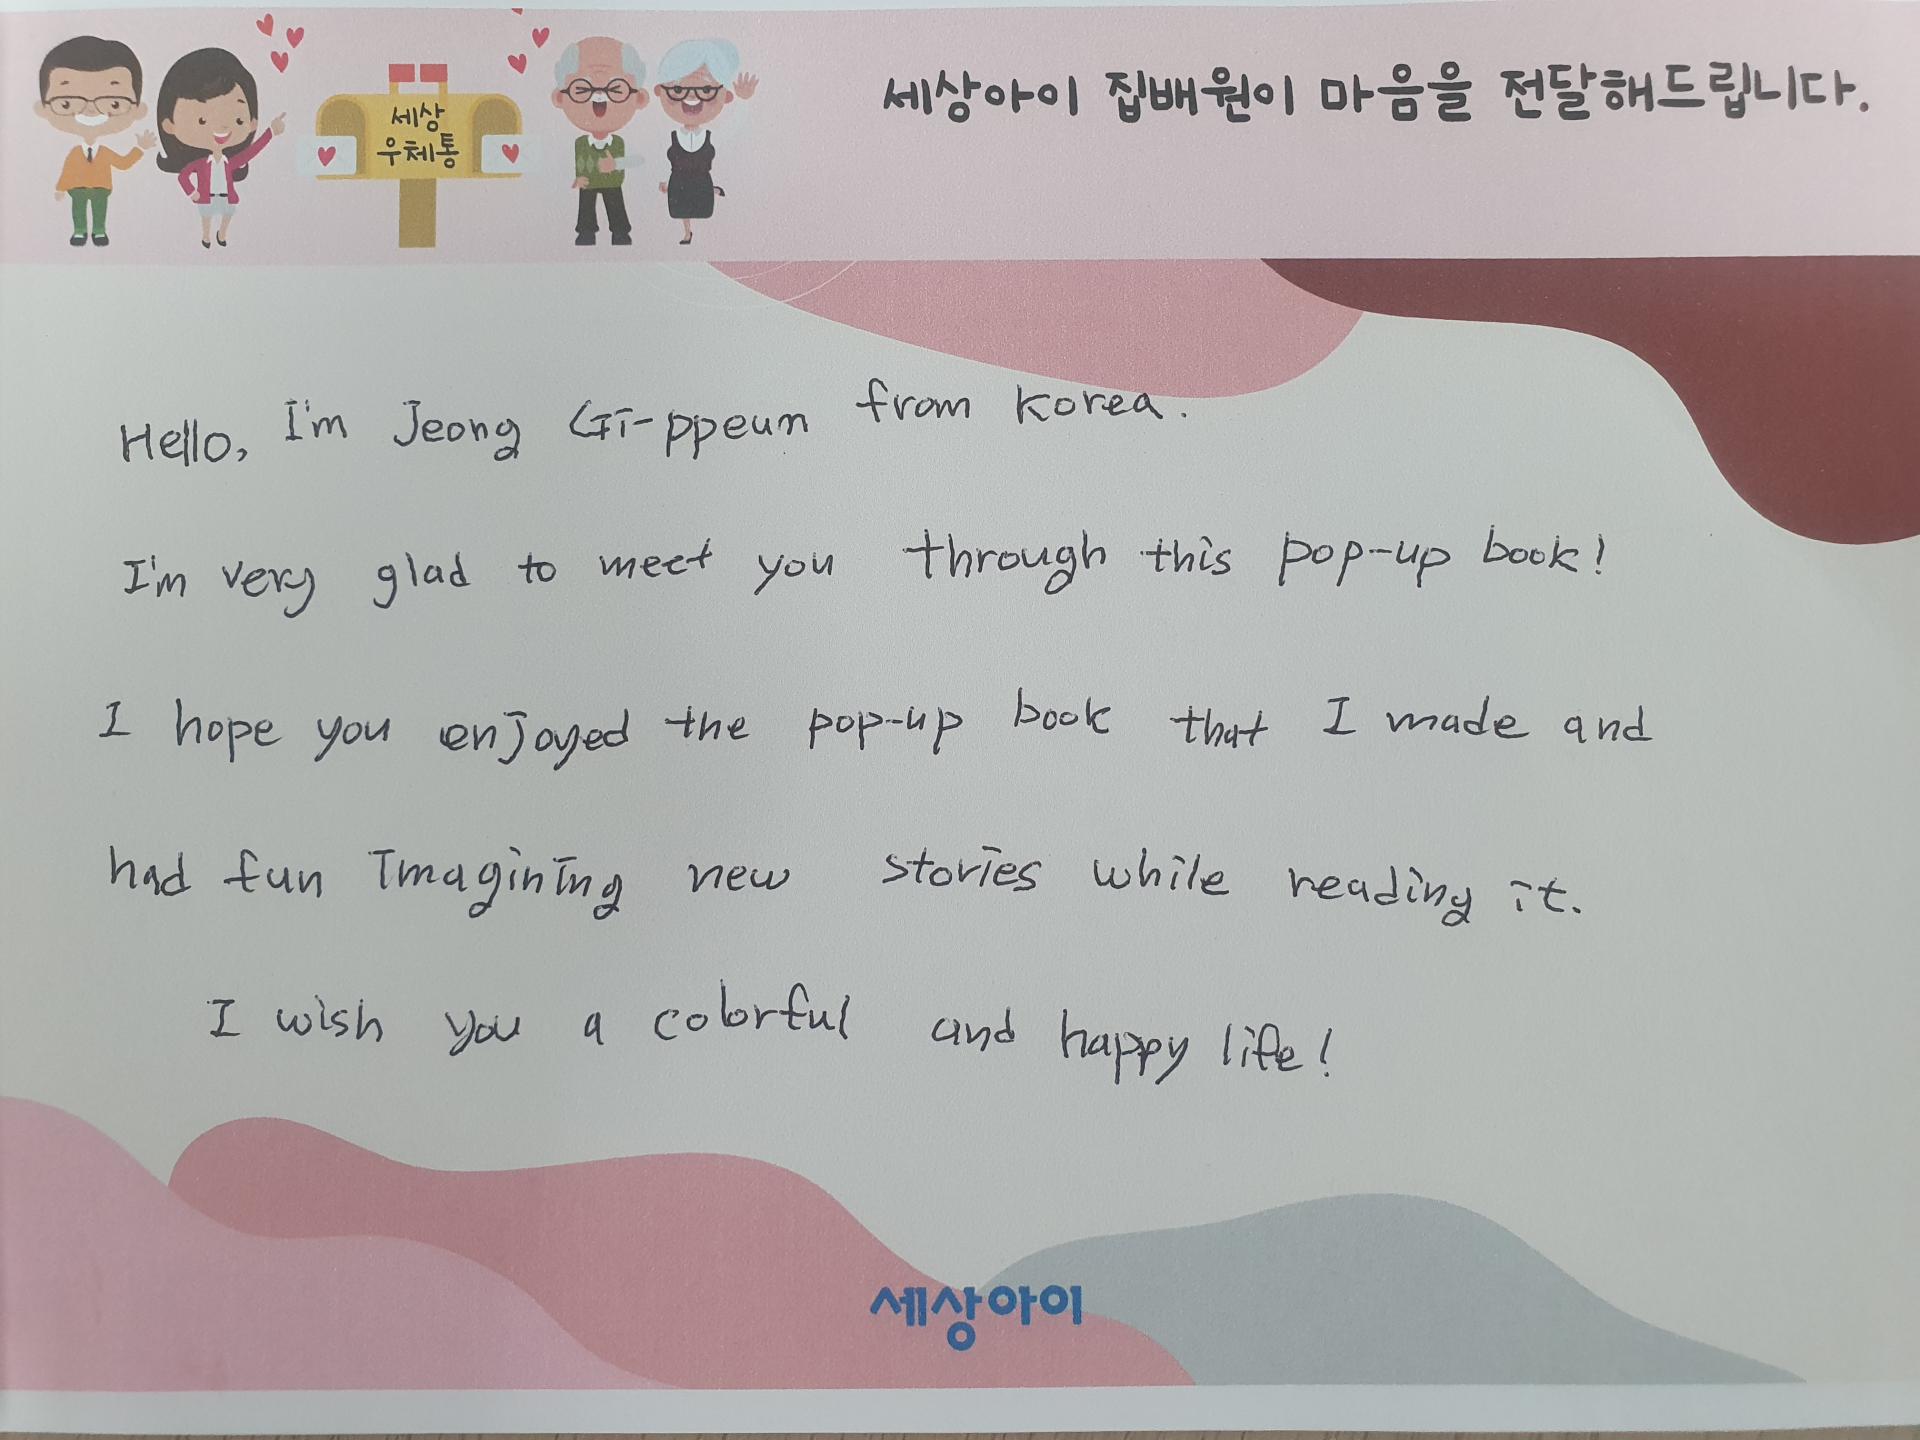 세상아이 집배원이 마음을 전달해드립니다.
세상
우체통
Hello, I'm Jeong Gi-ppeum from Korea.
I'm very glad to meet you through this pop-up book!
I hope you enjoyed the pop-up book that I made and
had fun Imagining new stories while reading it.
I wish you a colorful and happy life!
세상아이